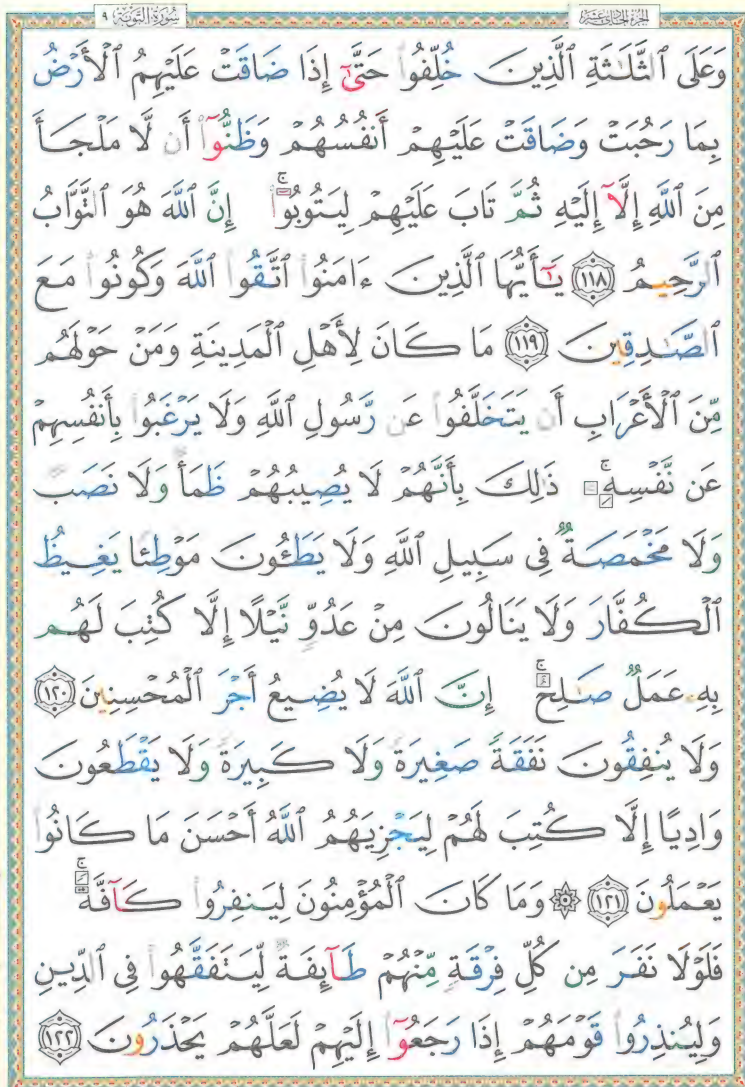 سُورَةُ التَّوْبَةِ ٩
الجُزْءُ الحَادِي عَشَرَ
وَعَلَى ٱلثَّلَٰثَةِ ٱلَّذِينَ خُلِّفُوا۟ حَتَّىٰٓ إِذَا ضَاقَتْ عَلَيْهِمُ ٱلْأَرْضُ
بِمَا رَحُبَتْ وَضَاقَتْ عَلَيْهِمْ أَنفُسُهُمْ وَظَنُّوٓا۟ أَن لَّا مَلْجَأَ
مِنَ ٱللَّهِ إِلَّآ إِلَيْهِ ثُمَّ تَابَ عَلَيْهِمْ لِيَتُوبُوٓا۟ ۚ إِنَّ ٱللَّهَ هُوَ ٱلتَّوَّابُ
ٱلرَّحِيمُ ١١٨ يَٰٓأَيُّهَا ٱلَّذِينَ ءَامَنُوا۟ ٱتَّقُوا۟ ٱللَّهَ وَكُونُوا۟ مَعَ
ٱلصَّٰدِقِينَ ١١٩ مَا كَانَ لِأَهْلِ ٱلْمَدِينَةِ وَمَنْ حَوْلَهُم
مِّنَ ٱلْأَعْرَابِ أَن يَتَخَلَّفُوا۟ عَن رَّسُولِ ٱللَّهِ وَلَا يَرْغَبُوا۟ بِأَنفُسِهِمْ
عَن نَّفْسِهِۦ ۚ ذَٰلِكَ بِأَنَّهُمْ لَا يُصِيبُهُمْ ظَمَأٌ وَلَا نَصَبٌ
وَلَا مَخْمَصَةٌ فِى سَبِيلِ ٱللَّهِ وَلَا يَطَـُٔونَ مَوْطِئًا يَغِيظُ
ٱلْكُفَّارَ وَلَا يَنَالُونَ مِنْ عَدُوٍّ نَّيْلًا إِلَّا كُتِبَ لَهُم
بِهِۦ عَمَلٌ صَٰلِحٌ ۚ إِنَّ ٱللَّهَ لَا يُضِيعُ أَجْرَ ٱلْمُحْسِنِينَ ١٢٠
وَلَا يُنفِقُونَ نَفَقَةً صَغِيرَةً وَلَا كَبِيرَةً وَلَا يَقْطَعُونَ
وَادِيًا إِلَّا كُتِبَ لَهُمْ لِيَجْزِيَهُمُ ٱللَّهُ أَحْسَنَ مَا كَانُوا۟
يَعْمَلُونَ ١٢١ ۞ وَمَا كَانَ ٱلْمُؤْمِنُونَ لِيَنفِرُوا۟ كَآفَّةً ۚ
فَلَوْلَا نَفَرَ مِن كُلِّ فِرْقَةٍ مِّنْهُمْ طَآئِفَةٌ لِّيَتَفَقَّهُوا۟ فِى ٱلدِّينِ
وَلِيُنذِرُوا۟ قَوْمَهُمْ إِذَا رَجَعُوٓا۟ إِلَيْهِمْ لَعَلَّهُمْ يَحْذَرُونَ ١٢٢